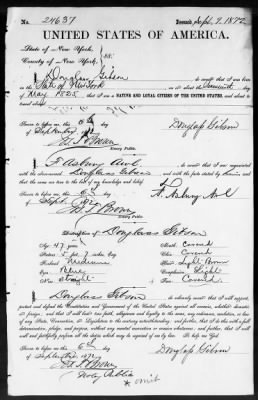 No. 24637 Issued Sept. 7. 1872
UNITED STATES OF AMERICA.
State of New York,
County of New York, } ss:
I, Douglass Gibson do swear that I was born
in the State of New York on or about the Seventh day of
May 1825 that I am a NATIVE AND LOYAL CITIZEN OF THE UNITED STATES, and about to travel
abroad.
Sworn to before me, this 6th day
of September 1872
Notary Public.
Douglass Gibson
I, F. Asbury Awl do swear that I am acquainted
with the above-named Douglass Gibson and with the facts stated by him
are true to the best of my knowledge and belief.
Sworn to before me, this 6th day
of Sept. 1872
Notary Public.
F. Asbury Awl
Description of Douglass Gibson
Age: 47 years
Mouth: Curved
Stature: 5 feet 7 inches Eng.
Chin: Curved
Forehead: Medium
Hair: Light Brown
Eyes: Blue
Complexion: Light
Nose: Straight
Face: Curved
I, Douglass Gibson do solemnly swear that I will support,
protect and defend the Constitution and Government of the United States against all enemies, whether domestic
or foreign; and that I will bear true faith, allegiance and loyalty to the same, any ordinance, resolution or law
of any State, Convention, or Legislature to the contrary notwithstanding; and further, that I do this with a full
determination, pledge, and purpose, without any mental reservation or evasion whatsoever; and further, that I will
well and faithfully perform all the duties which may be required of me by law. So help me God.
Sworn to before me, this 6th day
of September 1872
Douglass Gibson
Notary Public
* omit